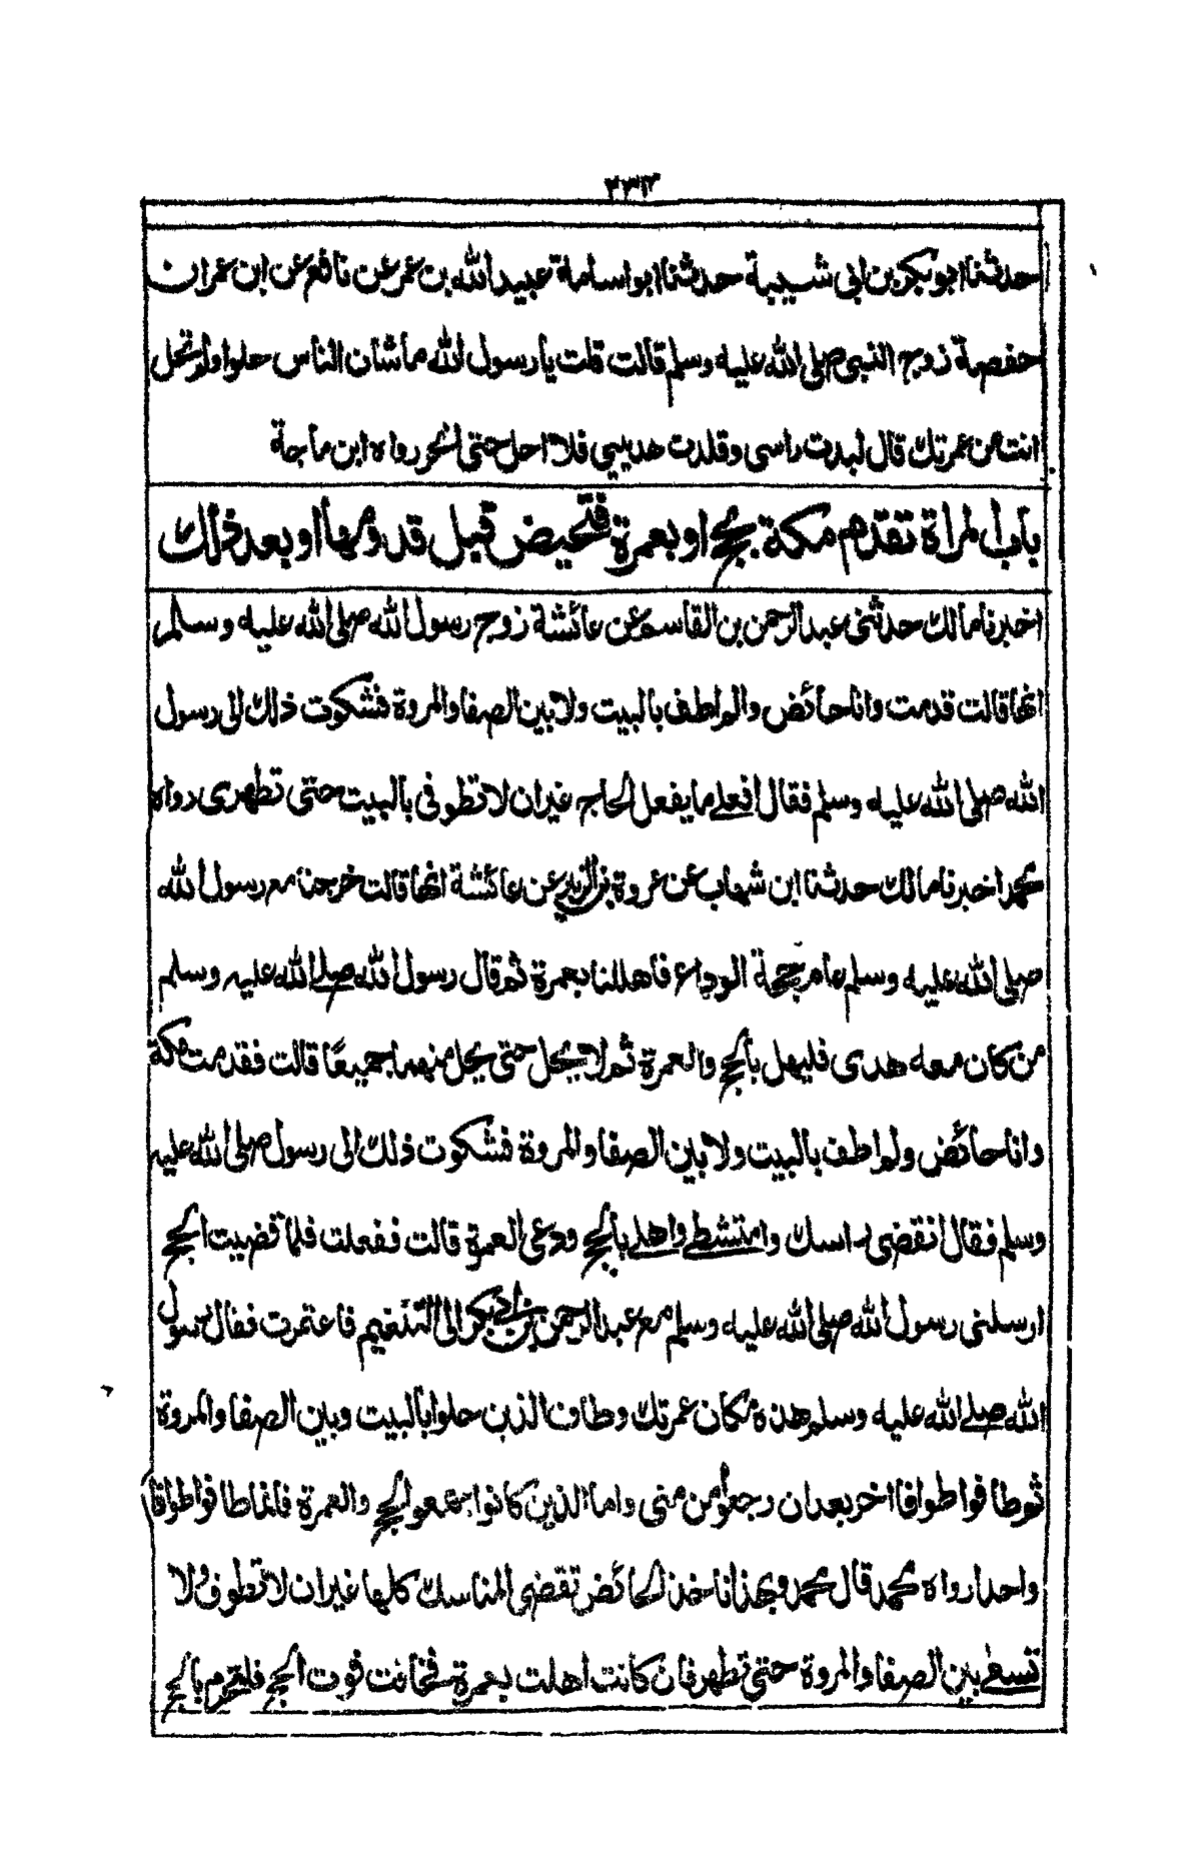 ٢٣٣
حدثنا ابو بكر بن ابى شيبة حدثنا ابو اسامة عبيد الله بن عمر عن نافع عن ابن عمر ان
حفصة زوج النبى صلى الله عليه وسلم قالت قلت يا رسول الله ما شان الناس حلوا ولم تحل
انت من عمرتك قال لبدت راسى وقلدت هديي فلا احل حتى انحر رواه ابن ماجة
باب المراة تقدم مكة بحج او بعمرة فتحيض قبل قدومها او بعد ذلك
اخبرنا مالك حدثنى عبد الرحمن بن القاسم عن عائشة زوج رسول الله صلى الله عليه وسلم
انها قالت قدمت وانا حائض ولم اطف بالبيت ولا بين الصفا والمروة فشكوت ذلك الى رسول
الله صلى الله عليه وسلم فقال افعلى ما يفعل الحاج غير ان لا تطوفى بالبيت حتى تطهرى رواه
محمد اخبرنا مالك حدثنا ابن شهاب عن عروة بن الزبير عن عائشة انها قالت خرجنا مع رسول الله
صلى الله عليه وسلم عام حجة الوداع فاهللنا بعمرة ثم قال رسول الله صلى الله عليه وسلم
من كان معه هدى فليهل بالحج والعمرة ثم لا يحل حتى يحل منهما جميعا قالت فقدمت مكة
وانا حائض ولم اطف بالبيت ولا بين الصفا والمروة فشكوت ذلك الى رسول صلى الله عليه
وسلم فقال انقضى راسك وامتشطى واهلى بالحج ودعى العمرة قالت ففعلت فلما قضيت الحج
ارسلنى رسول الله صلى الله عليه وسلم مع عبد الرحمن بن ابى بكر الى التنعيم فاعتمرت فقال رسول
الله صلى الله عليه وسلم هذه مكان عمرتك وطاف الذين حلوا بالبيت وبين الصفا والمروة
ثم طافوا طوافا اخر بعد ان رجعوا من منى واما الذين كانوا جمعوا الحج والعمرة فانما طافوا طوافا
واحدا رواه محمد قال محمد وبهذا ناخذ الحائض تقضى المناسك كلها غير ان لا تطوف ولا
تسعى بين الصفا والمروة حتى تطهر فان كانت اهلت بعمرة فخافت فوت الحج فلتحرم بالحج